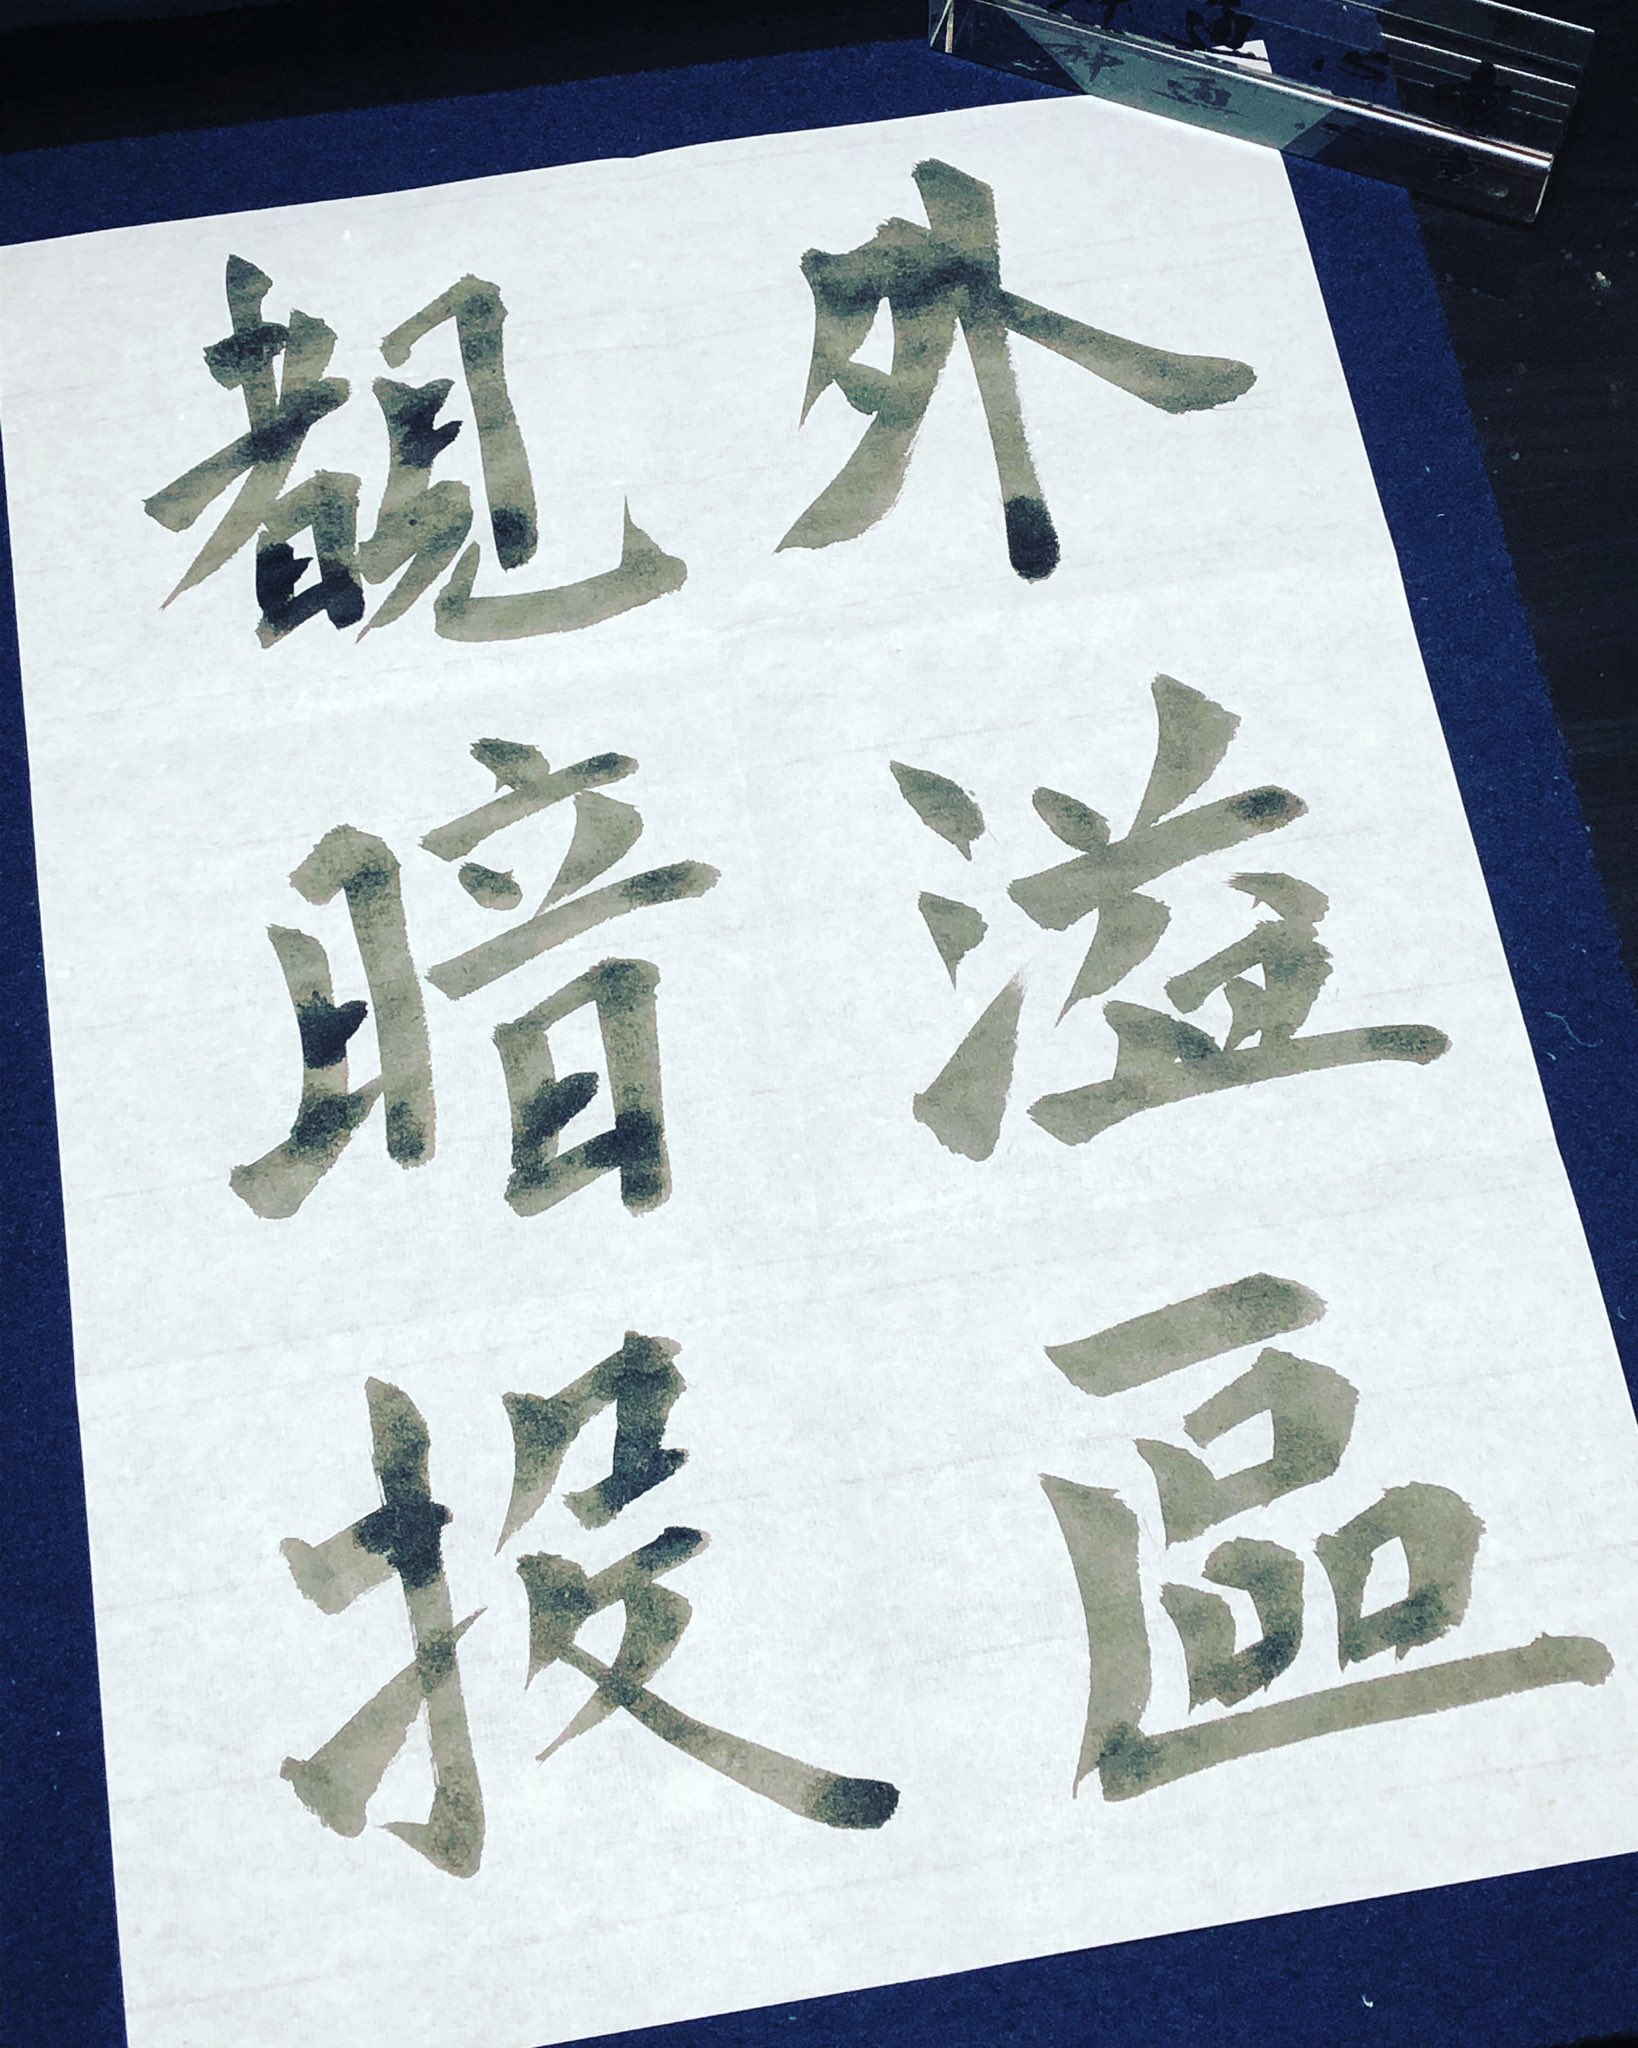 外溢區
覩暗投